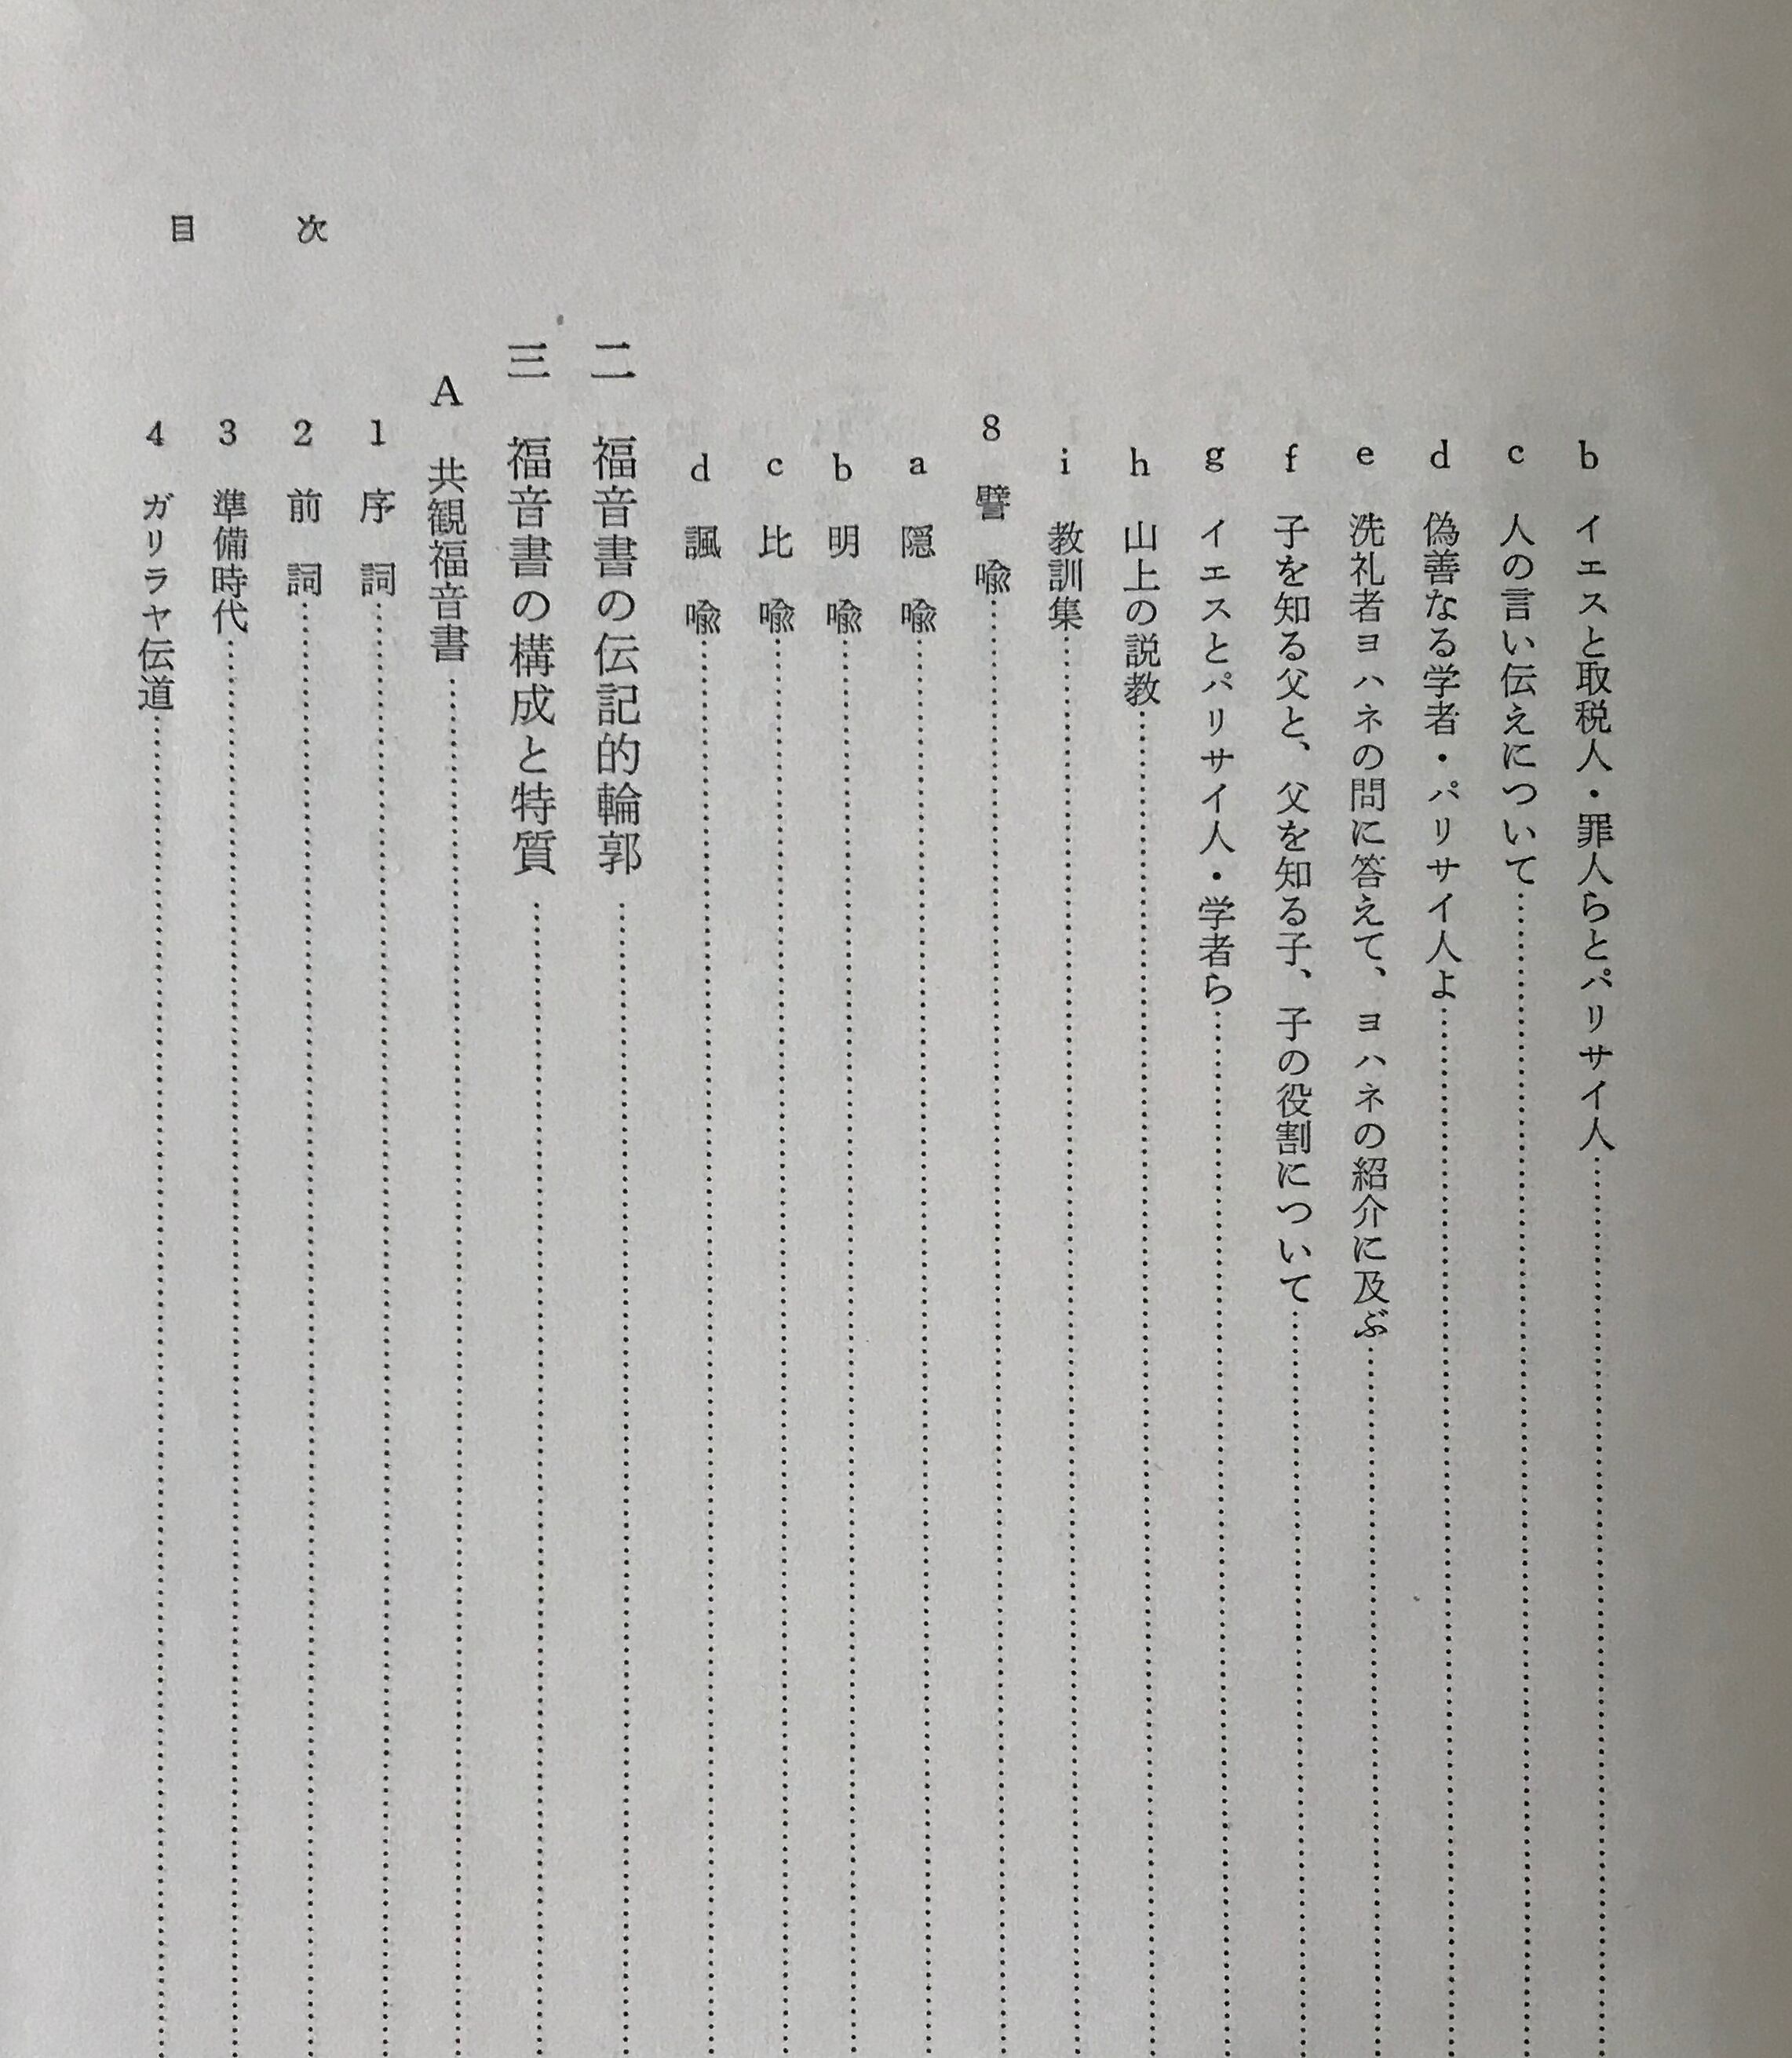 目 次
b イエスと取税人・罪人らとパリサイ人
c 人の言い伝えについて
d 偽善なる学者・パリサイ人よ
e 洗礼者ヨハネの問に答えて、ヨハネの紹介に及ぶ
f 子を知る父と、父を知る子、子の役割について
g イエスとパリサイ人・学者ら
h 山上の説教
i 教訓集
8 譬 喩
a 隠 喩
b 明 喩
c 比 喩
d 諷 喩
二 福音書の伝記的輪郭
三 福音書の構成と特質
A 共観福音書
1 序 詞
2 前 詞
3 準備時代
4 ガリラヤ伝道